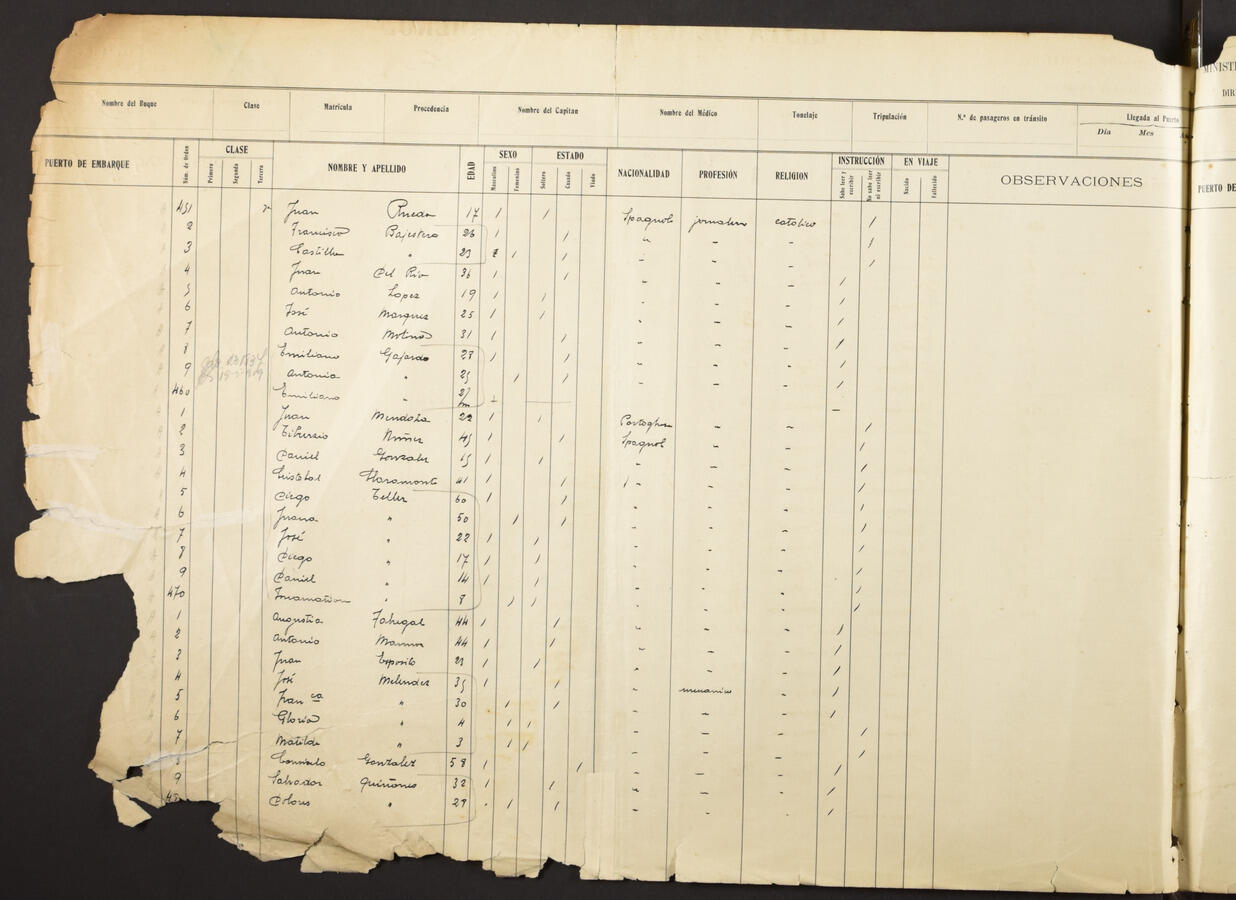 Nombre del Buque Clase Matrícula Procedencia Nombre del Capitan Nombre del Médico Tonelaje Tripulación N.º de pasageros en tránsito Llegada al Puerto
Dia Mes
PUERTO DE EMBARQUE Núm. de Orden CLASE Primera Segunda Tercera NOMBRE Y APELLIDO EDAD SEXO Masculino Femenino ESTADO Soltero Casado Viudo NACIONALIDAD PROFESIÓN RELIGION INSTRUCCIÓN Sabe leer y escribir No sabe leer ni escribir EN VIAJE Nacido Fallecido OBSERVACIONES
451 3ª Juan Rueda 17 / / Spagnol jornalero católico /
2 Francisco Bajestero 26 / / " - - /
3 Castillo " 23 / / - - - /
4 Juan Del Rio 36 / / " - - /
5 Antonio Lopez 19 / / " - - /
6 José Marques 25 / / " - - /
7 Antonio Molina 31 / / " - - /
8 Emiliano Gajardo 28 / / " - - /
9 Antonia " 25 / / " - - /
460 Emiliano " - -
1 Juan Mendoza 22 / / - - /
2 Tiburzio Nuñez 45 / / Spagnol - - /
3 Daniel Gonzalez 15 / / " - - /
4 Cristobal Claramonte 41 / / " - - /
5 Diego Teller 60 / / " - - /
6 Juana " 50 / / " - - /
7 José " 22 / / " - - /
8 Diego " 17 / / " - - /
9 Daniel " 14 / / " - - /
470 " 8 / / " - - /
1 Augustia Fabregal 44 / / " - - /
2 Antonio 44 / / " - - /
3 Juan Esposito 21 / / " - - /
4 José Melendez 35 / / " mecanico - /
5 Franca " 30 / / " - - /
6 Gloria " 4 / / " - - /
7 Matilde " 3 / / " - - /
8 Consuelo Gonzalez 58 / / " - - /
9 Salvador Quiñones 32 / / " - - /
Dolores " 29 / / " - - /
MINIST
DIR
PUERTO DE